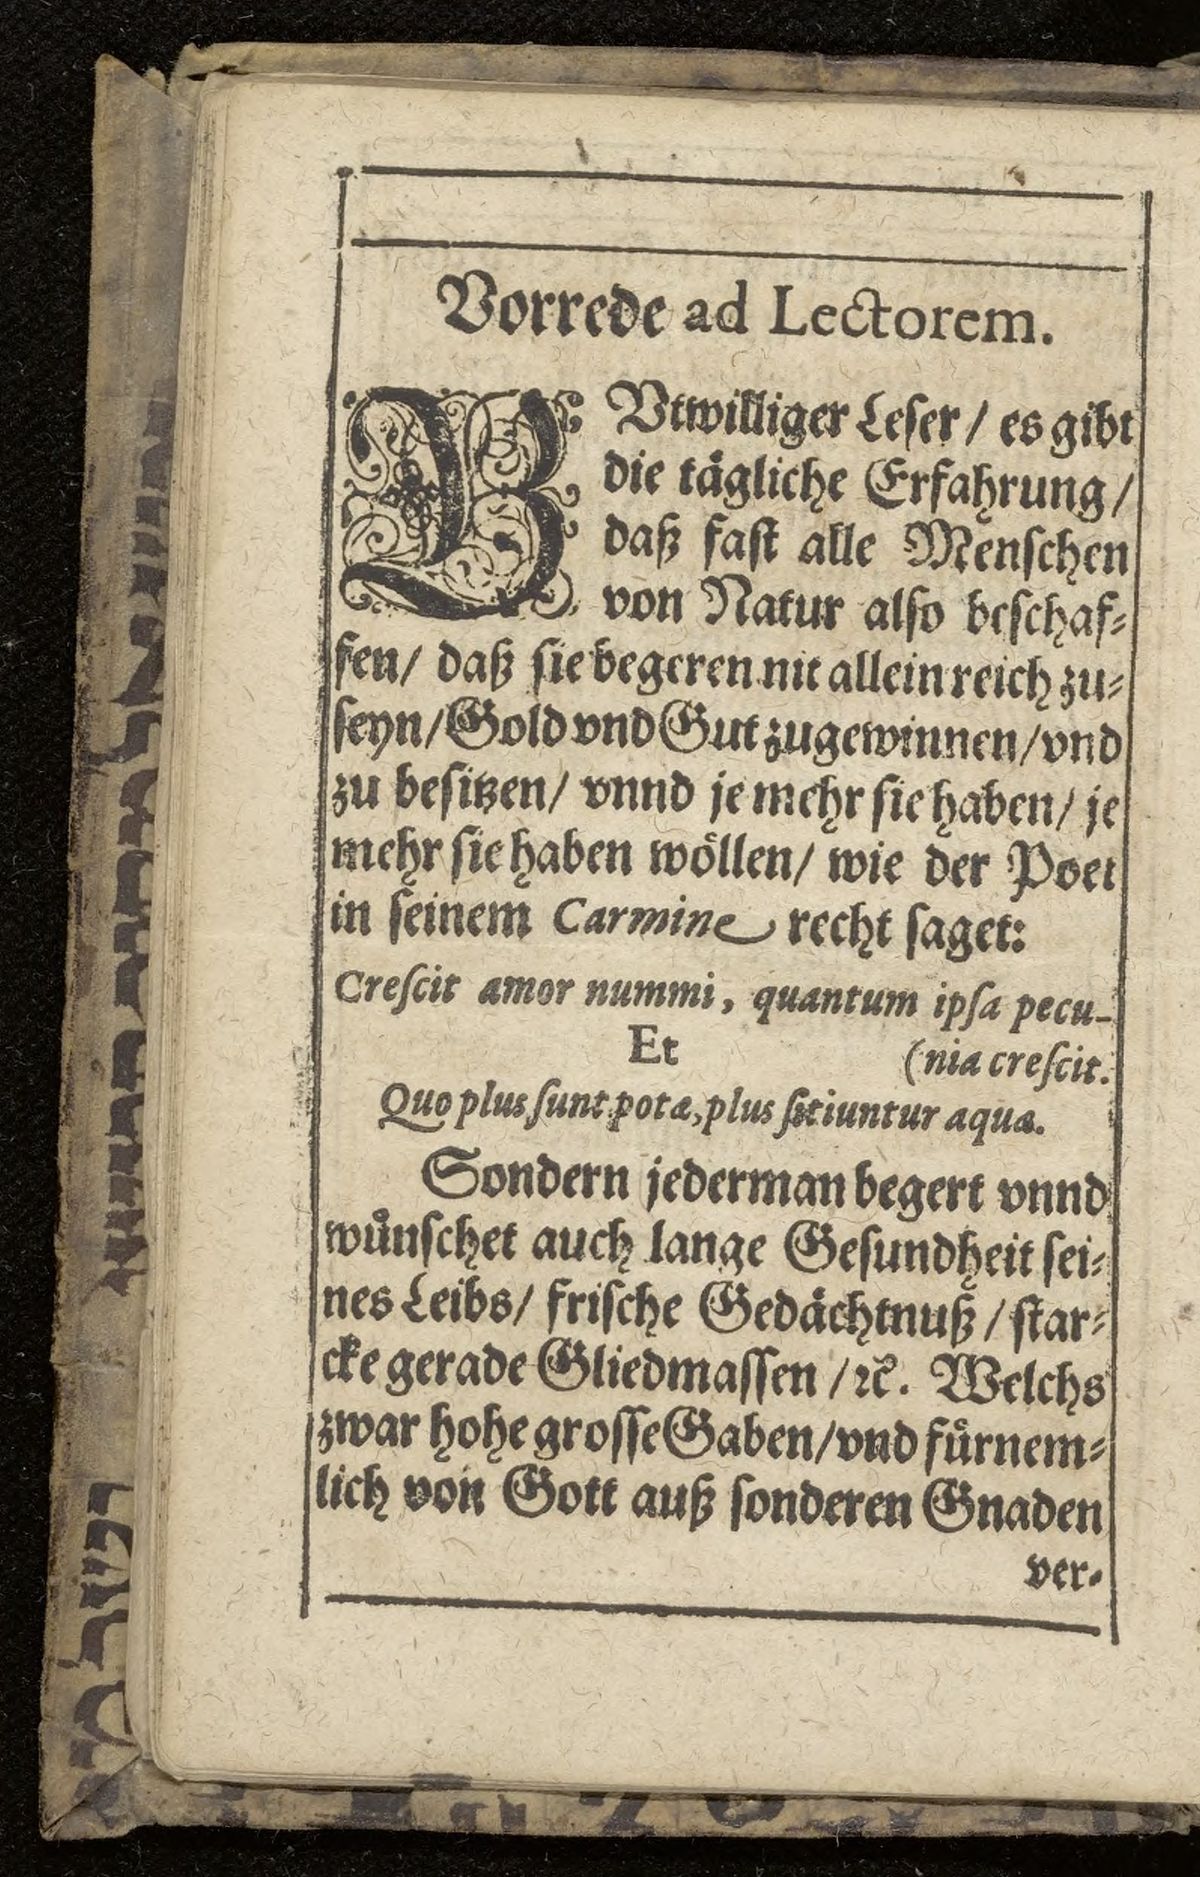 Vorrede ad Lectorem.
GVtwilliger Leser / es gibt
die tägliche Erfahrung /
daß fast alle Menschen
von Natur also beschaf-
fen / daß sie begeren nit allein reich zu-
seyn / Gold vnd Gut zugewinnen / vnd
zu besitzen / vnnd je mehr sie haben / je
mehr sie haben wöllen / wie der Poet
in seinem Carmine recht saget:
Crescit amor nummi, quantum ipsa pecu-
Et (nia crescit.
Quo plus sunt potæ, plus sitiuntur aquæ.
Sondern jederman begert vnnd
wůnschet auch lange Gesundheit sei-
nes Leibs / frische Gedächtnuß / star-
cke gerade Gliedmassen / ꝛc. Welchs
zwar hohe grosse Gaben / vnd fürnem-
lich von Gott auß sonderen Gnaden
ver-